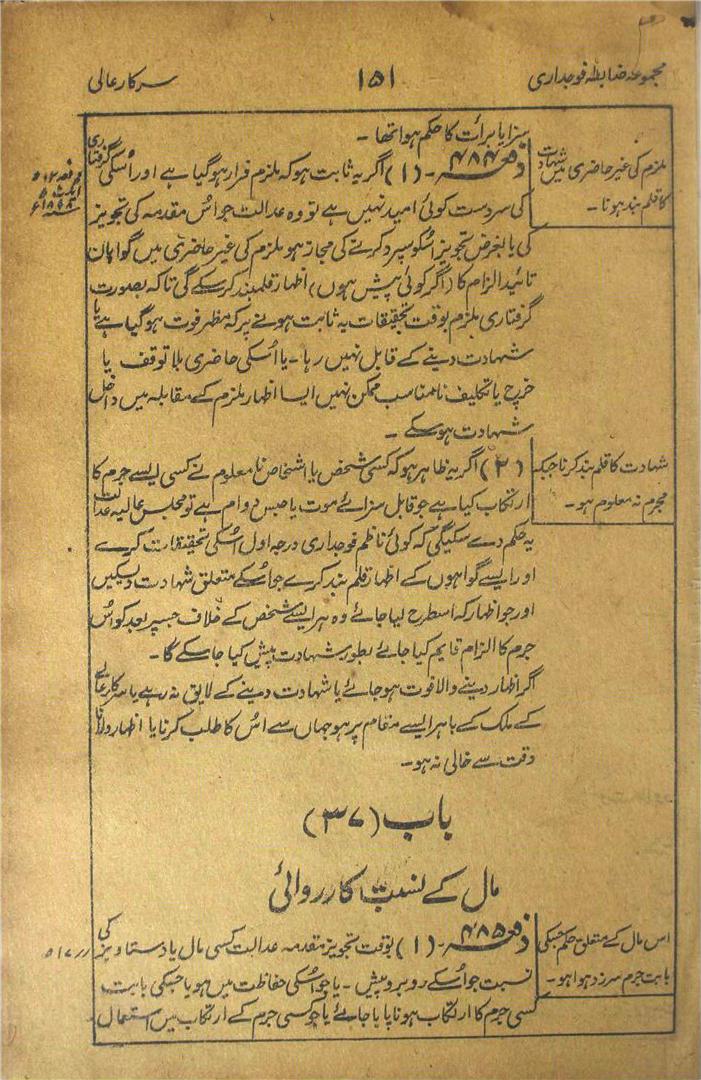 مجموعہ ضابطہ فوجداری
۱۵۱
سرکار عالی
سزا یا برأت کا حکم ہوا تھا۔
ملزم کی غیر حاضری میں شہادت
کا قلم بند ہونا۔
دفعہ ۴۸۴۔ (۱) اگر یہ ثابت ہو کہ ملزم فرار ہو گیا ہے اور اُسکی گرفتاری
دفعہ ۵۱۲
ایکٹ ۵
۱۸۹۸ء
کی سردست کوئی امید نہیں ہے تو وہ عدالت جو اُس مقدمہ کی تجویز
کی یا بغرض تجویز اُسکو سپرد کرنے کی مجاز ہو ملزم کی غیر حاضری میں گواہان
تائید الزام کا (اگر کوئی پیش ہوں) اظہار قلمبند کر سکے گی تاکہ بصورت
گرفتاری ملزم بوقت تحقیقات یہ ثابت ہونے پر کہ مظہر فوت ہو گیا ہے یا
شہادت دینے کے قابل نہیں رہا۔ یا اُسکی حاضری بلا توقف یا
خرچ یا تکلیف نامناسب ممکن نہیں ایسا اظہار ملزم کے مقابلہ میں داخل
شہادت ہو سکے۔
شہادت کا قلم بند کرنا جبکہ
مجرم نہ معلوم ہو۔
(۲) اگر یہ ظاہر ہو کہ کسی شخص یا اشخاص نامعلوم نے کسی ایسے جرم کا
ارتکاب کیا ہے جو قابل سزائے موت یا حبس دوام ہے تو مجلس عالیہ عدالت
یہ حکم دے سکیگی کہ کوئی ناظم فوجداری درجہ اول اُسکی تحقیقات کرے
اور ایسے گواہوں کے اظہار قلم بند کرے جو اُسکے متعلق شہادت دیسکیں
اور جو اظہار کہ اسطرح لیا جائے وہ ہر ایسے شخص کے خلاف جسپر بعد کو اُس
جرم کا الزام قایم کیا جائے بطور شہادت پیش کیا جا سکے گا۔
اگر اظہار دینے والا فوت ہو جائے یا شہادت دینے کے لایق نہ رہے یا سرکار عالی
کے ملک کے باہر ایسے مقام پر ہو جہاں سے اُس کا طلب کرنا یا اظہار دلانا
دقت سے خالی نہ ہو۔
باب (۳۷)
مال کے نسبت کارروائی
اس مال کے متعلق حکم جسکی
بابت جرم سرزد ہوا ہو۔
دفعہ ۴۸۵۔ (۱) بوقت تجویز مقدمہ عدالت کسی مال یا دستاویز کی
۵۱۷
نسبت جو اُسکے روبرو پیش۔ یا جو اُسکی حفاظت میں ہو یا جسکی بابت
کسی جرم کا ارتکاب ہونا پایا جائے یا جو کسی جرم کے ارتکاب میں استعمال